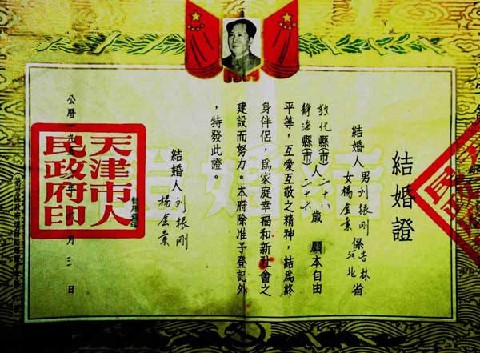 結婚證
結婚人男刘振剛係吉林省
女楊河北
敦化縣市人二十歲願本自由
靜海縣市人二十
平等,互愛互敬之精神,結為終
身伴侶,為家庭幸福和新社會之
建設而努力。本府除准予登記外
,特發此證。
結婚人刘振剛
楊
公曆年月三日
天津市人
民政府印